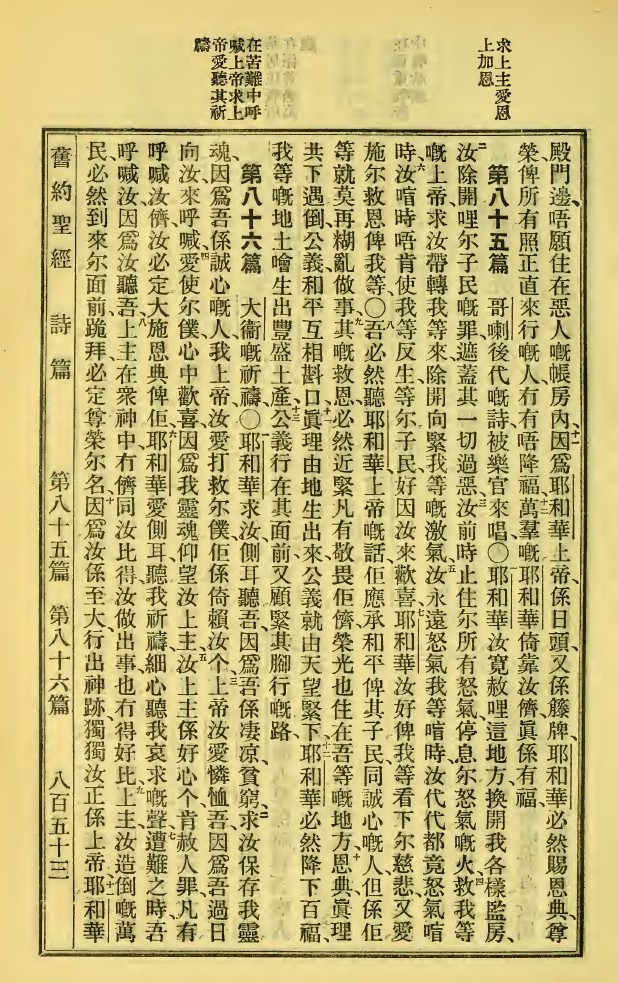 求上主愛恩
上加恩
在苦難中呼
喊上帝求上
帝愛聽其祈
禱
殿門邊唔願住在惡人嘅帳房內、十一因爲耶和華上帝係日頭又係籐牌、耶和華必然賜恩典、尊
榮、俾所有照正直來行嘅人冇有唔降福、十二萬羣嘅耶和華倚靠汝儕眞係有福、
第八十五篇 哥喇後代嘅詩被樂官來唱〇耶和華汝寬赦哩這地方換開我各樣監房、
二汝除開哩尔子民嘅罪、遮蓋其一切過惡、三汝前時止住尔所有怒氣、停息尔怒氣嘅火、四救我等
嘅上帝、求汝帶轉我等來、除開向緊我等嘅激氣、五汝永遠怒氣我等喑時、汝代代都竟怒氣喑
時、六汝喑時唔肯使我等反生等尔子民好因汝來歡喜、七耶和華汝好俾我等看下尔慈悲又愛
施尔救恩俾我等、〇八吾必然聽耶和華上帝嘅話、佢應承和平俾其子民、同誠心嘅人、但係佢
等就莫再糊亂做事、九其嘅救恩必然近緊凡有敬畏佢儕榮光也住在吾等嘅地方、十恩典眞理
共下遇倒、公義和平互相斟口、十一眞理由地生出來、公義就由天望緊下、十二耶和華必然降下百福、
我等嘅地土噲生出豐盛土產、十三公義行在其面前又顧緊其腳行嘅路、
第八十六篇 大衛嘅祈禱、〇耶和華求汝側耳聽吾、因爲吾係凄凉、貧窮、二求汝保存我靈
魂、因爲吾係誠心嘅人、我上帝、汝愛打救尔僕、佢係倚賴汝个、三上帝汝愛憐恤吾、因爲吾過日
向汝來呼喊、四愛使尔僕心中歡喜、因爲我靈魂仰望汝上主、五汝上主係好心个、肯赦人罪、凡有
呼喊汝儕、汝必定大施恩典俾佢、六耶和華愛側耳聽我祈禱、細心聽我哀求嘅聲、七遭難之時、吾
呼喊汝、因爲汝聽吾、八上主在衆神中冇儕同汝比得、汝做出事也冇得好比、九上主汝造倒嘅萬
民必然到來尔面前跪拜、必定尊榮尔名、十因爲汝係至大、行出神跡、獨獨汝正係上帝、十一耶和華
舊約聖經 詩篇 第八十五篇 第八十六篇 八百五十三